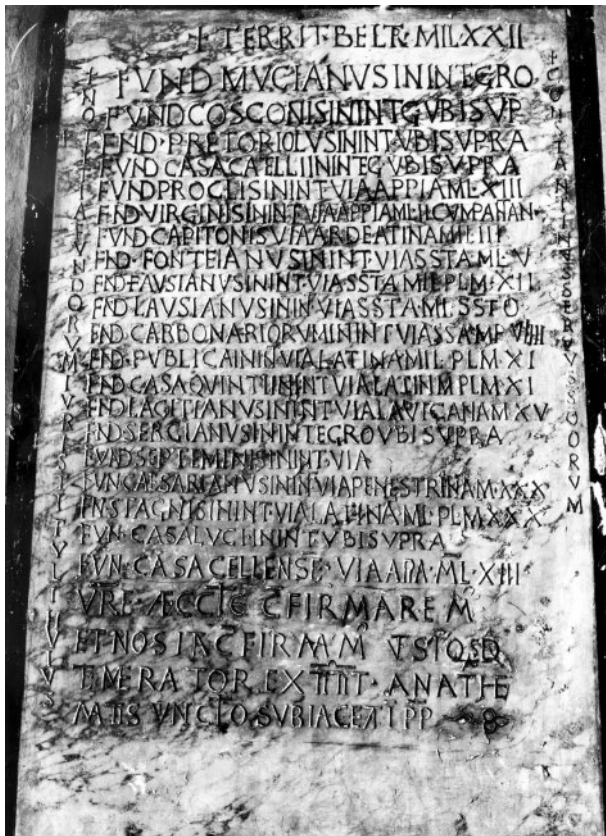 + TERRIT·BELT·MIL·XXII
+ FUND MUCIANUS IN INTEGRO
FUND COSCONIS IN INTG UBI SUP
FND·PRETORIOLUS IN INT·UBI SUPRA
FUND CASACAELLII IN INTEG UBI SUPRA
FUND PROCLIS IN INT VIA APPIA ML XIII
FND VIRGINIS IN INT VIA APPIA
FUND CAPITONIS VIA ARDEATINA MIL III
FND·FONTEIANUS IN INT·VIA SSTA ML·V
FND FAUSIANUS IN INT·VIA SSTA MIL PLM·XII
FND LAUSIANUS IN IN VIA SSTA ML SSTO
FND CARBONARIORUM IN INT VIA SSA MP VIIII
FND·PUBLICA IN IN VIA LATINA MIL PLM·XI
FND CASA QUINTI IN INT VIA LATIN M PLM XI
FND IN INT VIA LAVICANA M XV
FND SERGIANUS IN INTEGRO UBI SUPRA
SEPTEMINIS IN INT·VIA
FUN CAESARIANUS IN IN VIA PENESTRINA M·XXX
FN STAGNIS IN INT·VIA LATINA ML·PLM XXX
FUN·CASA LUCI IN INT UBI SUPRA
FUN·CASA CELLENSE·VIA APA·ML·XIII
VRE·ÆCCLE CFIRMARE M
ET NOS IA CFIRMAM
TEMERATOR EX ANATHE
MATIS UNCLO SUBIACEAT PP
+ NOTITIA FUNDORUM IURIS TITULI HUIUS
+ CONSTANTINUS SERVUS SCORUM